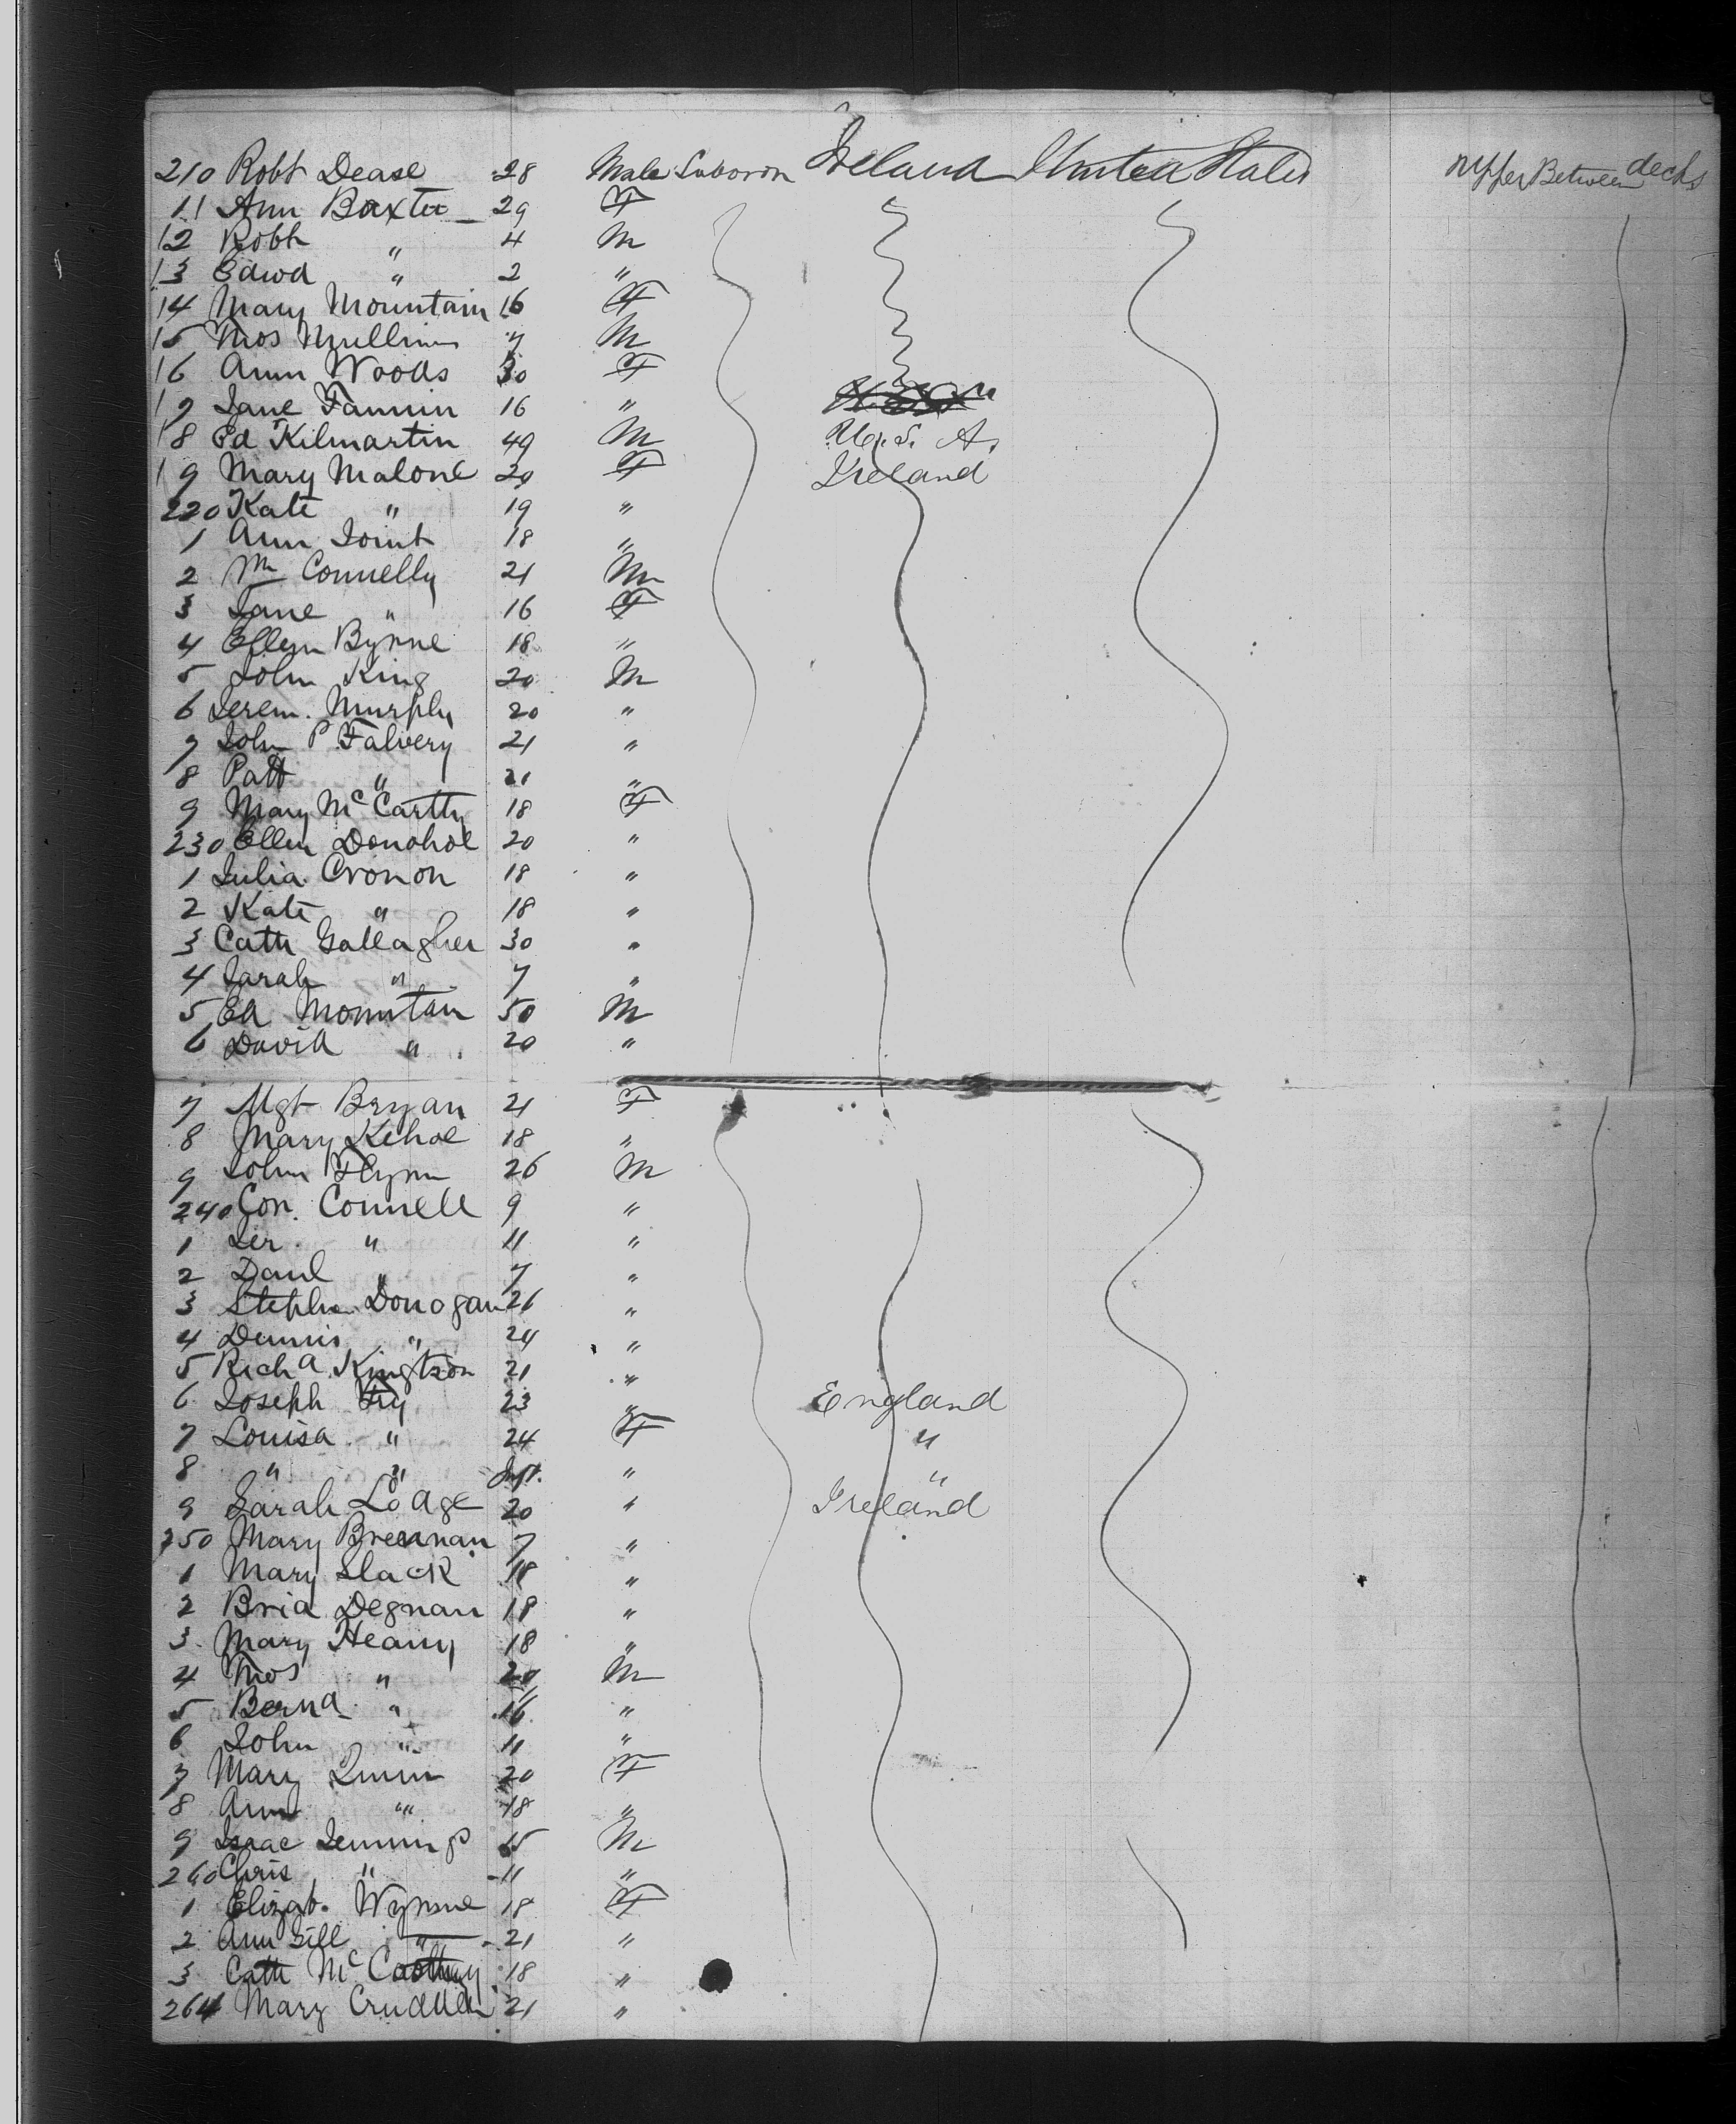 210 Robt Dease 28 Male Laboror Ireland United States Upper Between decks
11 Ann Baxter 29 F
12 Robt " 4 M
13 Edwd " 2 "
14 Mary Mountain 16 F
15 Thos Mullins 7 M
16 Ann Woods 30 F
17 Jane Fannin 16 "
18 Ed Kilmartin 49 M U. S. A.
19 Mary Malone 20 F Ireland
220 Kate " 19 "
1 Ann Joint 18 "
2 Wm Connelly 21 M
3 Jane " 16 F
4 Ellen Byrne 18 "
5 John King 20 M
6 Jerem. Murphy 20 "
7 John P Falvery 21 "
8 Patt " 21 "
9 Mary McCartty 18 F
230 Ellen Donohoe 20 "
1 Julia Cronon 18 "
2 Kate " 18 "
3 Cath Gallagher 30 "
4 Sarah " 7 "
5 Ed Mountain 50 M
6 David " 20 "
7 Mgt Bryan 21 F
8 Mary Kehoe 18 "
9 John Flynn 26 M
240 Con. Connell 9 "
1 Jer. " 11 "
2 Danl " 7 "
3 Stephn Donogan 26 "
4 Dennis " 24 "
5 Richd Kingston 21 "
6 Joseph Fry 23 " England
7 Louisa " 24 F "
8 " " Inft. " "
9 Sarah Loage 20 " Ireland
250 Mary Brennan 7 "
1 Mary Slack 18 "
2 Brid Degnan 18 "
3 Mary Heany 18 "
4 Thos " 20 M
5 Bernd " 16 "
6 John " 11 "
7 Mary Quinn 20 F
8 Ann " 18 "
9 Isaac Jennings 15 M
260 Chris " 11 "
1 Elizab. Wynne 18 F
2 Ann Gill 21 "
3 Cath McCarthy 18 "
264 Mary Crudden 21 "